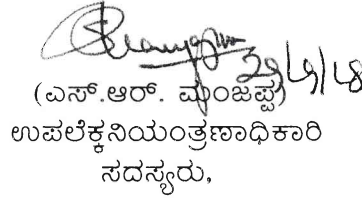 (ಎಸ್.ಆರ್. ಮಂಜಪ್ಪ)
ಉಪಲೆಕ್ಕನಿಯಂತ್ರಣಾಧಿಕಾರಿ
ಸದಸ್ಯರು,